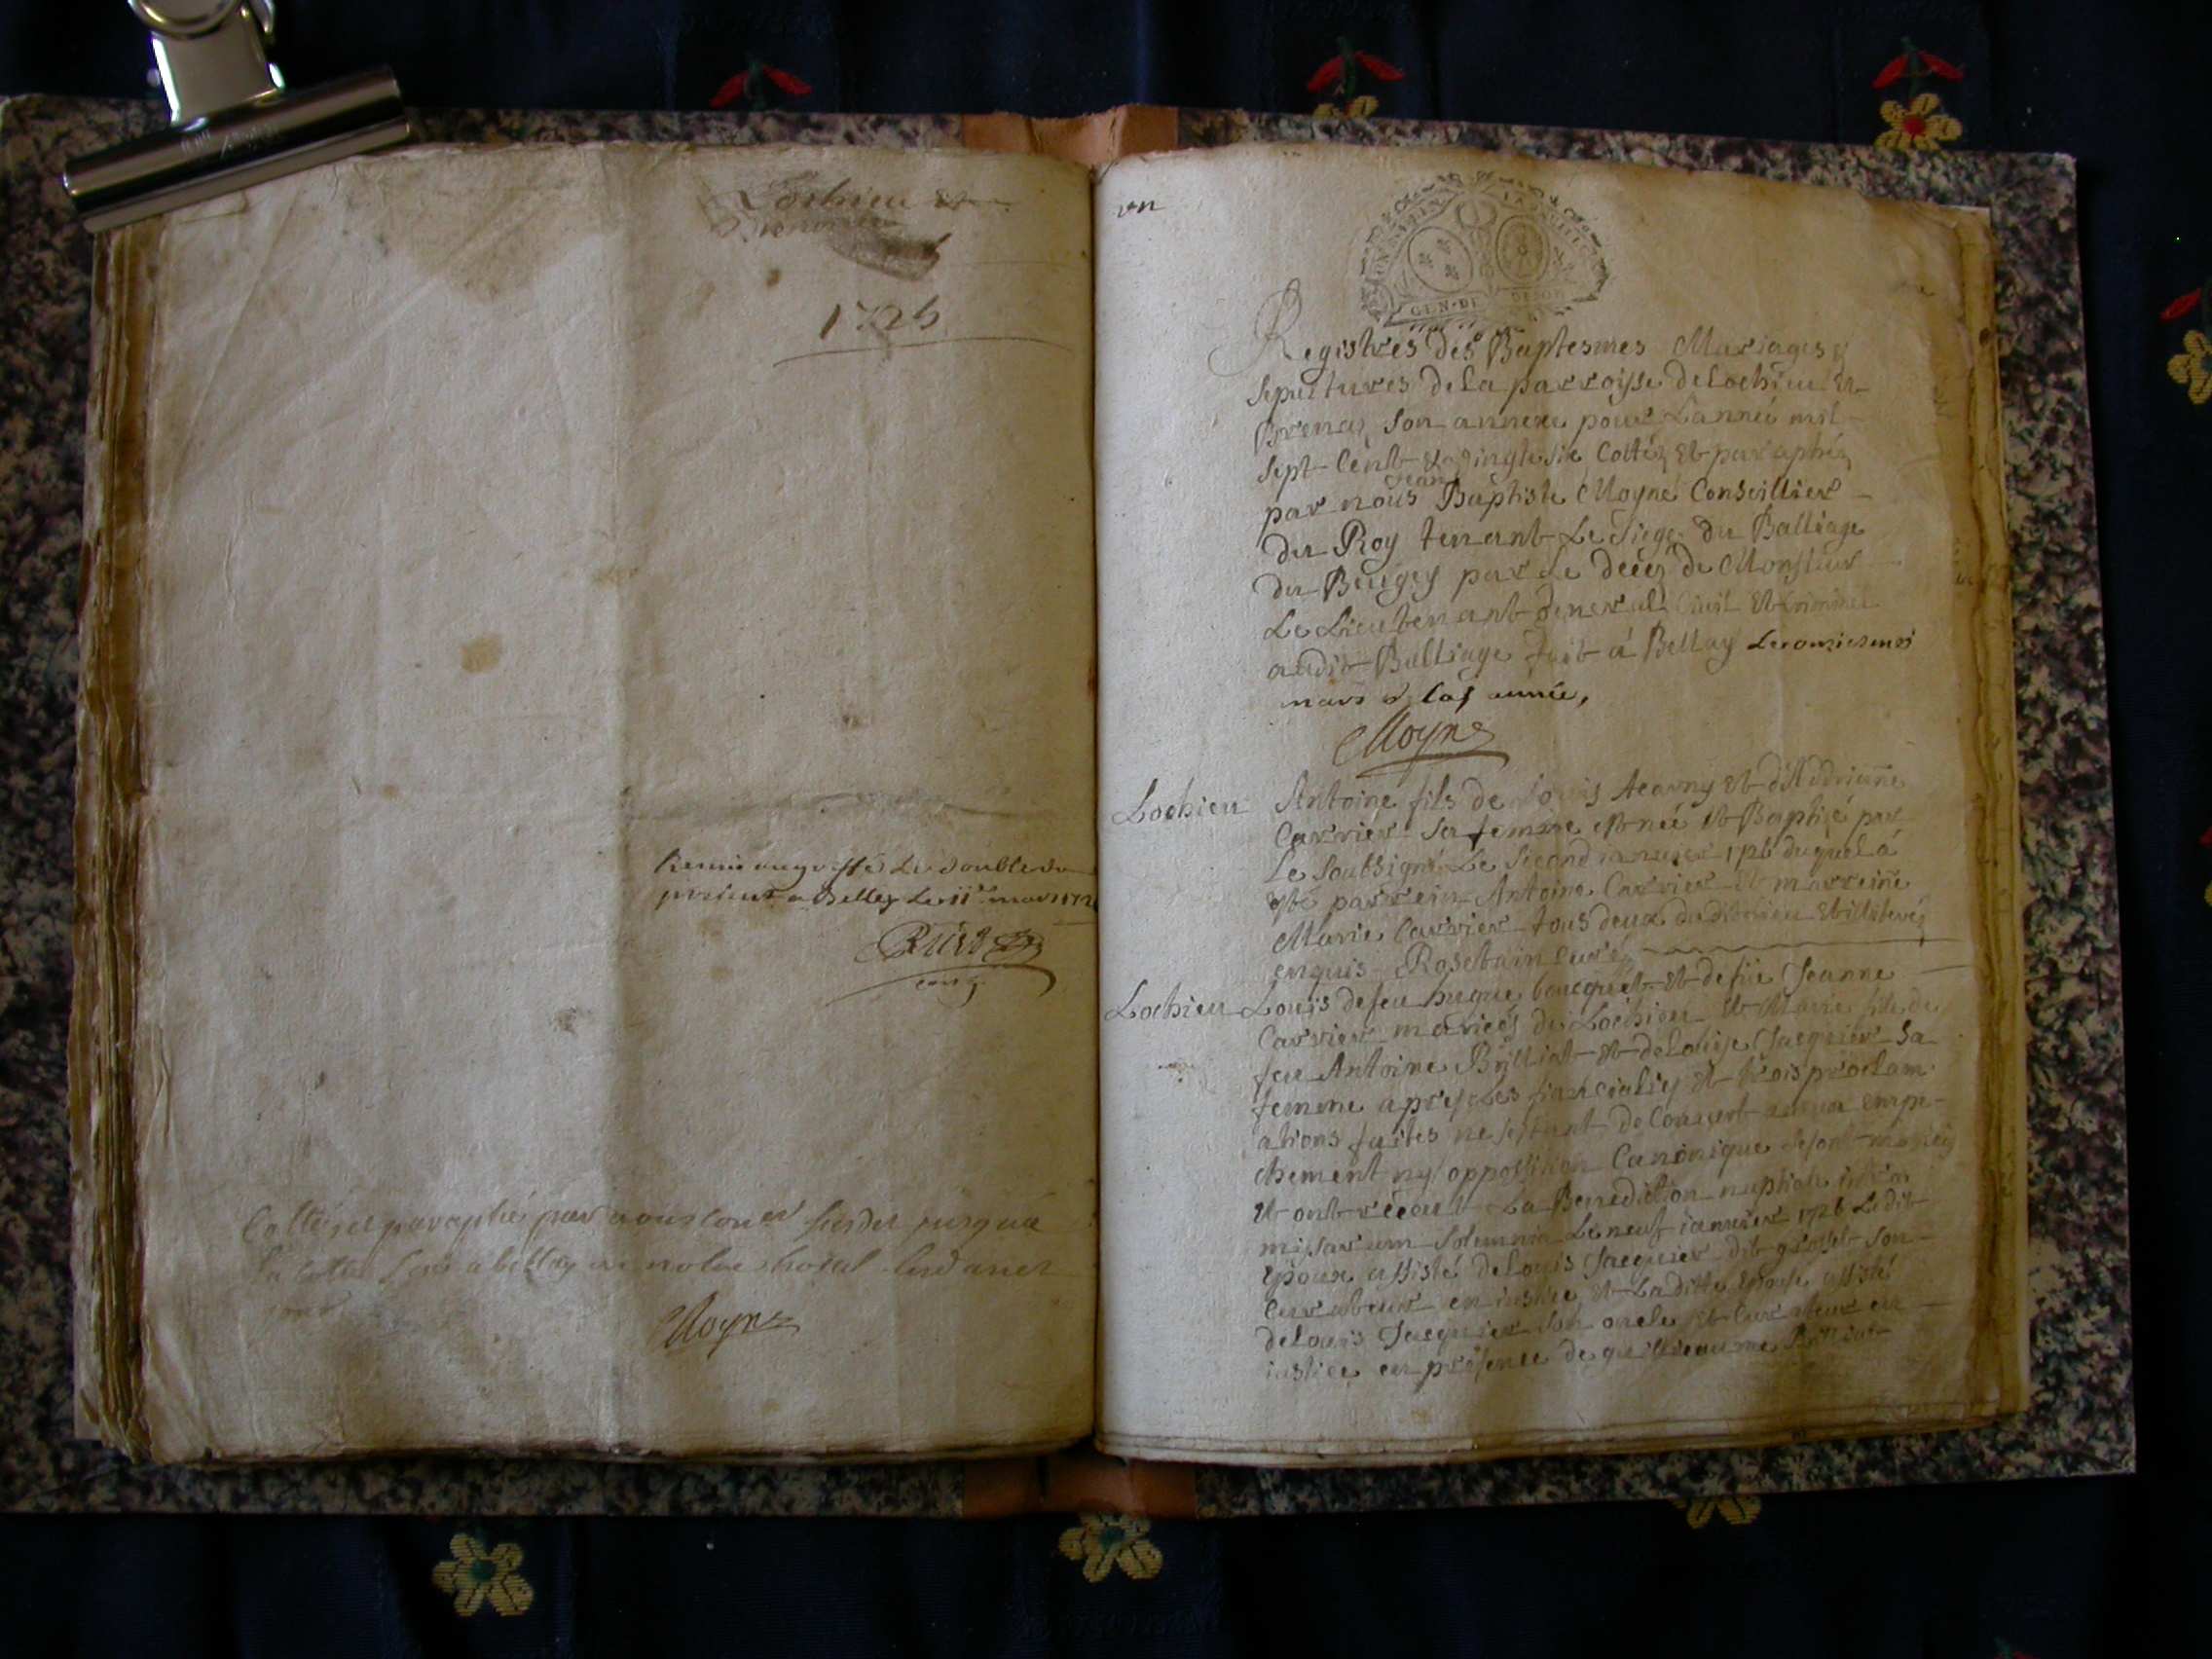 Lochieu et
1725
Remis au greffe Le double du
present a Belley Le 11e mars 172
Cottés et paraphé par nous
La cotte a belley en notre hotel
Moyne
un
GEN·DE DIJON
Registres des Baptesmes Mariages &
sepultures de La parroisse de Lochieu et
Brenaz son annexe pour Lannée mil
sept Cent & vingt six Cottéz et paraphéz
par nous Jean Baptiste Moyne Conseillier
du Roy tenant Le Siege du Balliage
du Beugey par Le decez de Monsieur
Le Lieutenant General Civil et Criminel
audit Balliage fait á Belley Le onziesme
mars année,
Moyne
Lochieu Antoine fils de Louis et d'Adrianne
Carrier sa femme est né et Baptizé par
Le soubsigné Le second janvier 1726 duquel á
esté parrein Antoine Carrier et marreine
Marie Carrier tous deux dudit Lochieu et illiterés
enquis Rosetain curé
Lochieu Louis de feu hugue bouquet et de fue Jeanne
Carrier mariés de Lochieu et Marie fille de
feu Antoine Brilliat et de Louise Jacquier sa
femme apres Les fianciales et trois proclam
ations faites ne sestant decouvert aucun empe-
chement ny opposition Canonique se sont mariés
et ont receu La Benediction nuptiale
missarum solemnia Le neuf janvier 1726 Ledit
epoux assisté de Louis Jacquier dit son
curateur en justice et Laditte epouse assisté
de Louis Jacquier son oncle et curateur en
justice en presence de guilleaume Brilliat